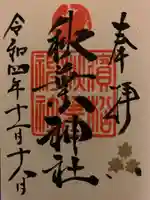 奉拝
秋葉神社
令和四年十一月十六日